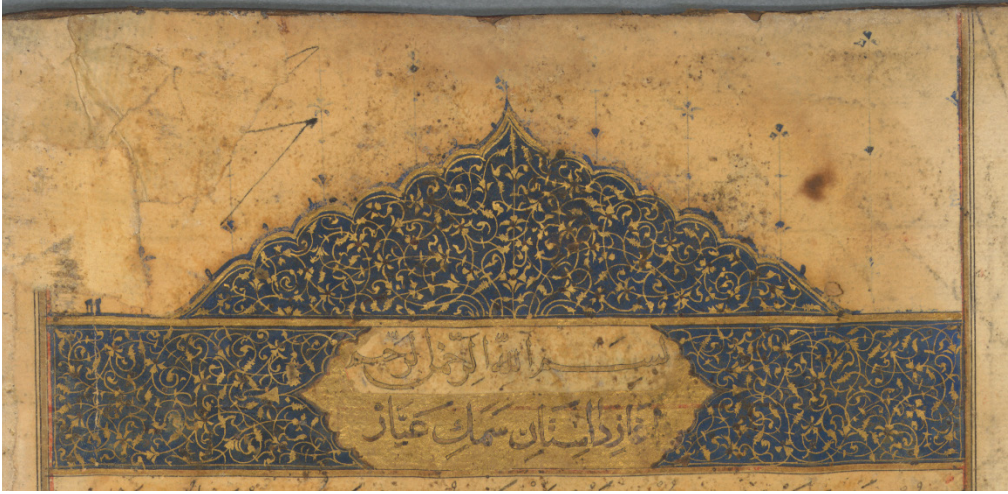 بسم الله الرحمن الرحيم
آغاز داستان سمك عيار